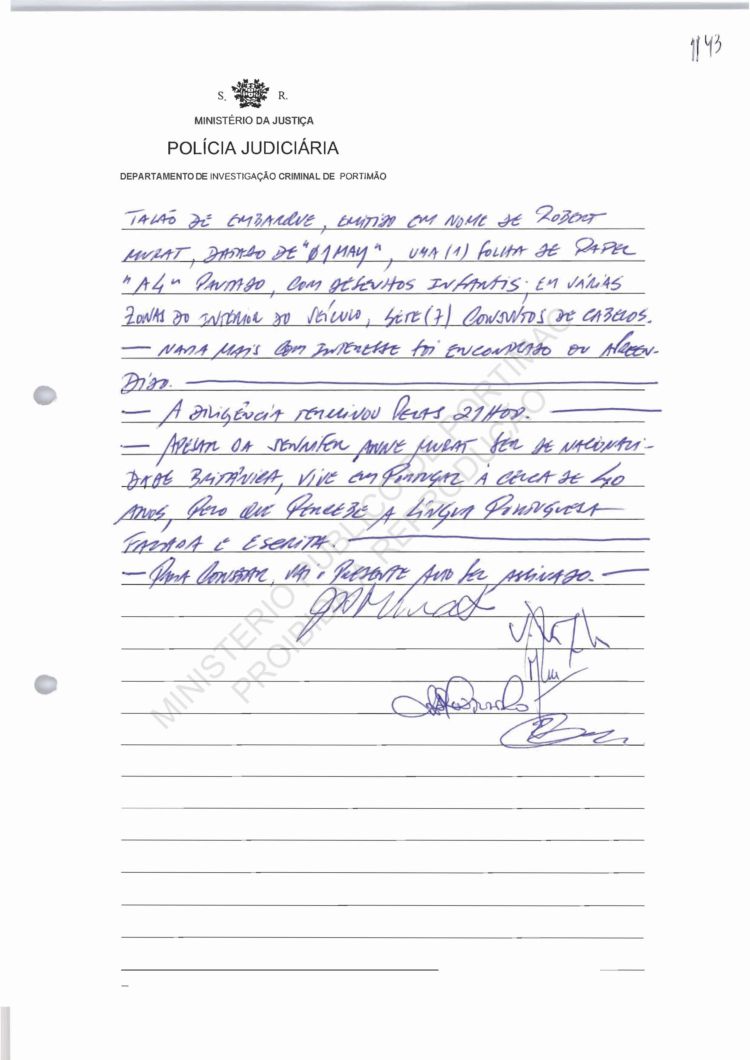 1143
S. R.
MINISTÉRIO DA JUSTIÇA
POLÍCIA JUDICIÁRIA
DEPARTAMENTO DE INVESTIGAÇÃO CRIMINAL DE PORTIMÃO
TALÃO DE EMBARQUE, EMITIDO EM NOME DE ROBERT
MURAT, DATADO DE "01MAY", UMA (1) FOLHA DE PAPEL
"A4" PAUTADO, COM DESENHOS INFANTIS; EM VÁRIAS
ZONAS DO INTERIOR DO VEÍCULO, SETE (7) CONJUNTOS DE CABELOS.
— NADA MAIS COM INTERESSE FOI ENCONTRADO OU APREEN-
DIDO.
— A DILIGÊNCIA TERMINOU PELAS 21H00.
— APESAR DA JENNIFER ANNE MURAT SER DE NACIONALI-
DADE BRITÂNICA, VIVE EM PORTUGAL À CERCA DE 40
ANOS, PELO QUE PERCEBE A LÍNGUA PORTUGUESA
FALADA E ESCRITA.
— PARA CONSTAR, VAI O PRESENTE AUTO SER ASSINADO. —
Murat
MINISTÉRIO PÚBLICO DE PORTIMÃO
PROIBIDA A REPRODUÇÃO